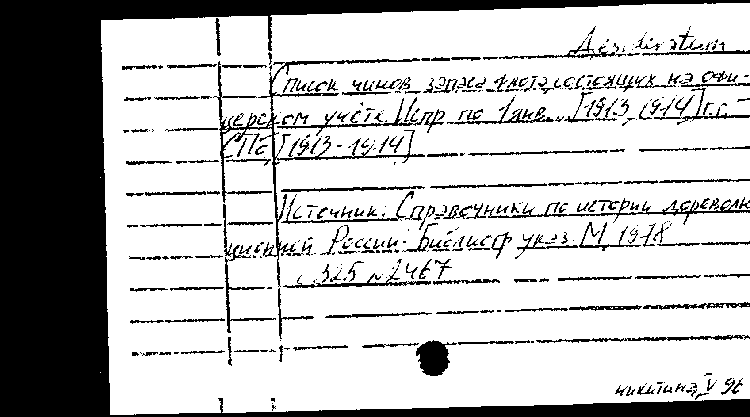 Desideratum
Список чинов запаса флота, состоящих на офи-
церском учёте. Испр. по 1 янв... [1913, 1914] г.г. -
СПб, [1913-1914]
Источник: Справочники по истории дореволю-
ционной России: Библиогр. указ. М, 1978
с. 325 № 2467
никитина, V 96